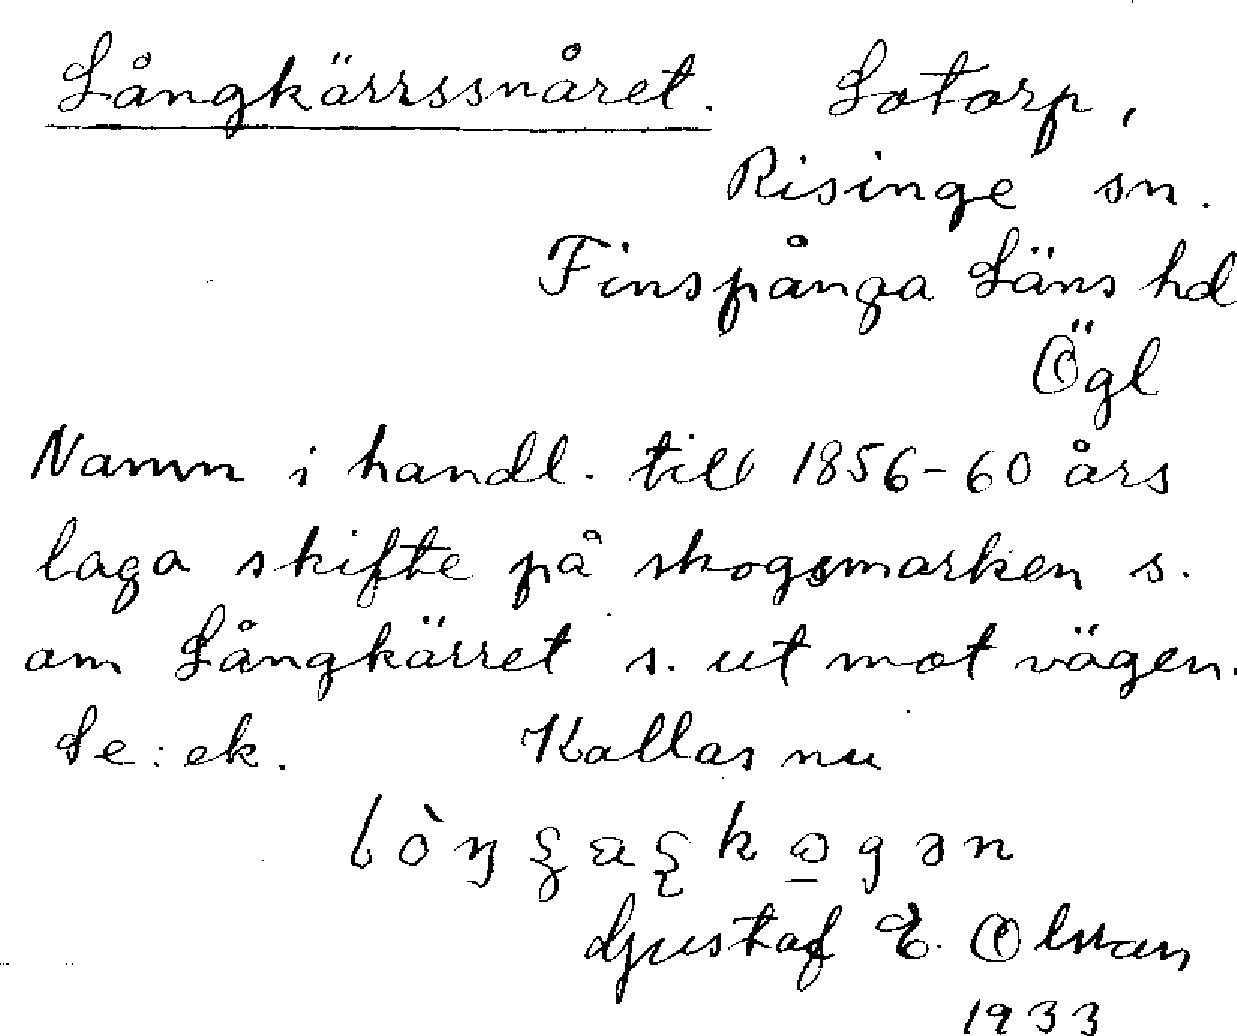 Långkärrssnåret. Lotorp,
Risinge sn.
Finspånga Läns hd
Ögl
Namn i handl. till 1856-60 års
laga skifte på skogsmarken s.
om Långkärret s. ut mot vägen.
Se: ek. Kallas nu
Gustaf E. Olsson
1933